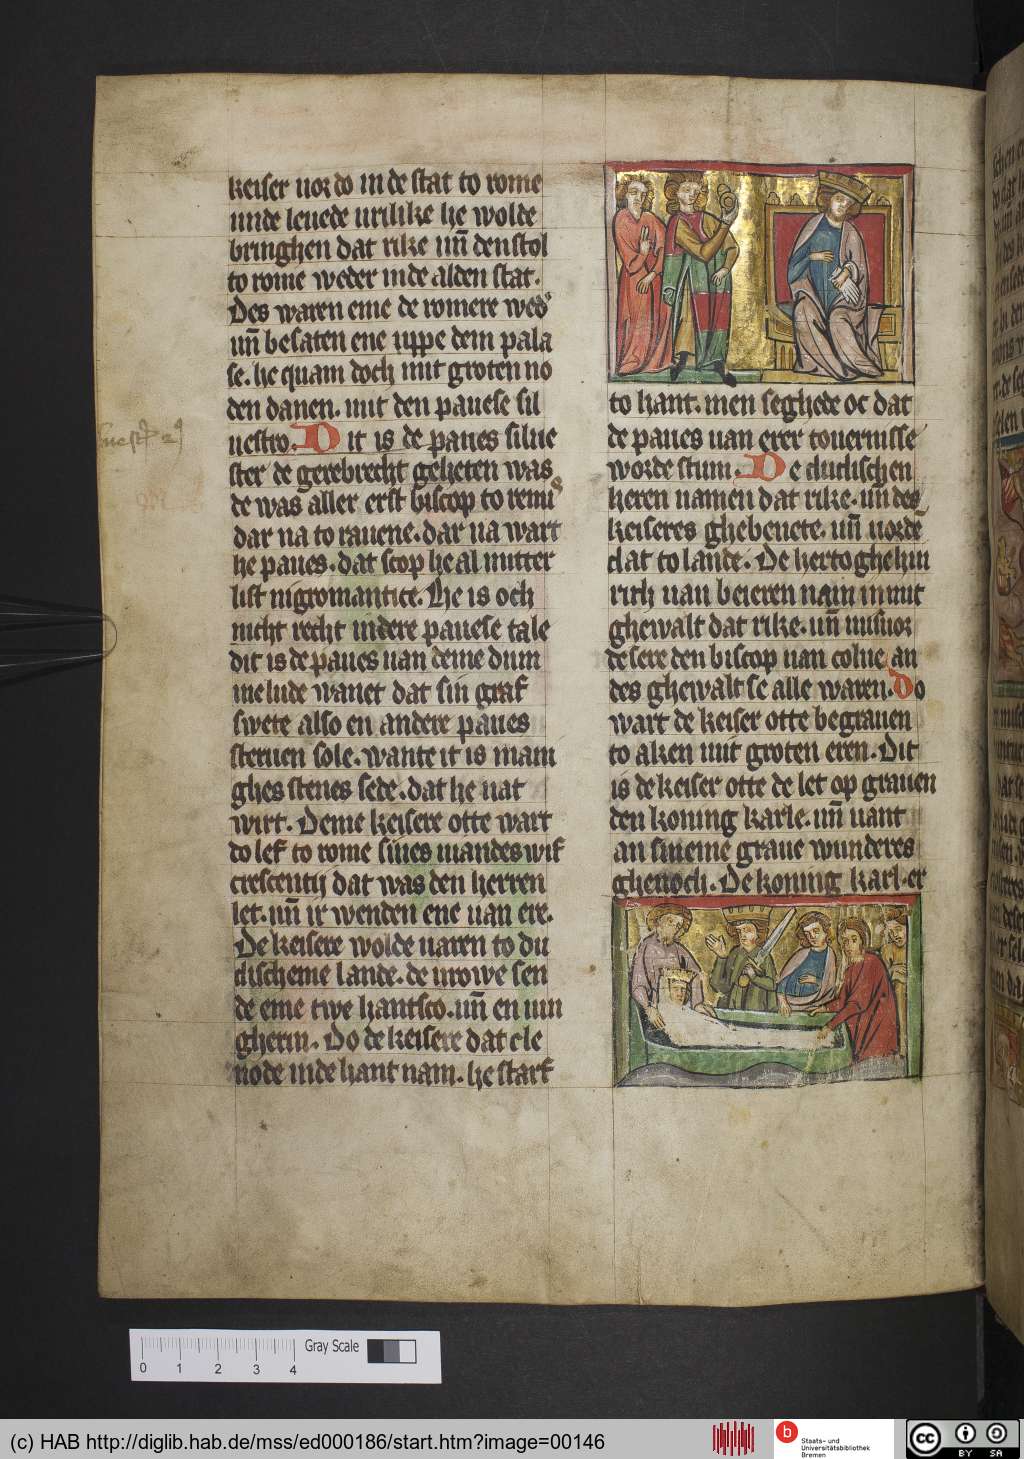 keiser vor do in de stat to rome
unde levede vrilike he wolde
bringhen dat rike uñ den stol
to rome weder in de alden stat.
Des waren eme de romere wed'
uñ besaten ene uppe dem pala
se. he quam doch mit groten no
den danen. mit den pavese sil
vestro. Dit is de paves silve
ster de gerebrecht geheten was
de was aller erst biscop to remis
dar na to ravene. dar na wart
he paves. dat scop he al mitter
list nigromantice. He is och
nicht recht in dere pavese tale
dit is de paves van deme dum
me lude wanet dat sin graf
swete also en andere paves
sterven sole. wante it is mani
ghes stenes sede. dat he nat
wirt. Deme keisere otte wart
do lef to rome sines viandes wif
crescentij dat was den herren
let. uñ ir wenden ene van ere.
De keisere wolde varen to du
discheme lande. de vrowe sen
de eme twe hantsco. uñ en vin
gherin. Do de keisere dat cle
node in de hant nam. he starf
to hant. men seghede oc dat
de paves van erer tovernisse
worde stum. De dudischen
heren namen dat rike. uñ des
keiseres ghebenete. uñ vordē
dat to lande. De hertoghe hin
rich van beieren nam in mit
ghewalt dat rike. uñ
de sere den biscop van colne an
des ghewalt se alle waren. Do
wart de keiser otte begraven
to aken mit groten eren. Dit
is de keiser otte de let op graven
den koning karle. uñ vant
an sineme grave wunderes
ghenoch. De koning karl. er
0 1 2 3 4
Gray Scale
(c) HAB http://diglib.hab.de/mss/ed000186/start.htm?image=00146
b
Staats- und
Universitätsbibliothek
Bremen
cc BY SA